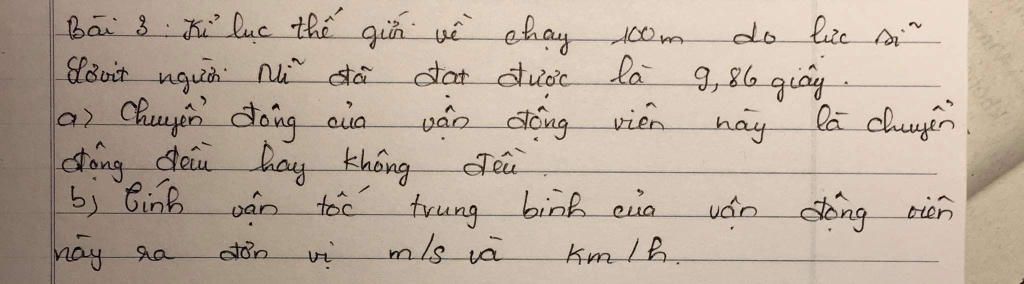 Bài 3: Kỉ lục thế giới về chạy 100m do lực sĩ
Lơvit người Mĩ đã đạt được là 9,86 giây.
a) Chuyển động của vận động viên này là chuyển
động đều hay không đều
b) Tính vận tốc trung bình của vận động viên
này ra đơn vị m/s và km/h.